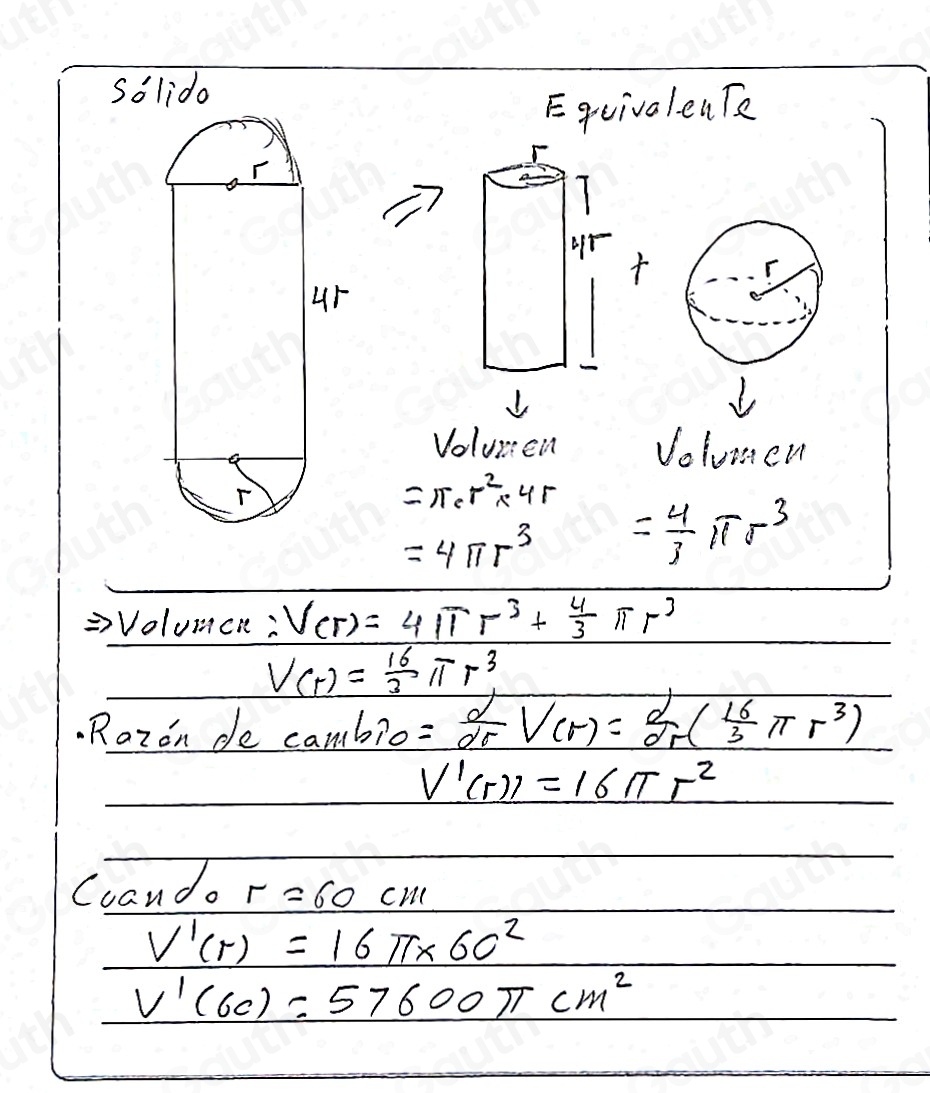 Sólido
Equivalente
r
4r
r
r
4r
+
r
Volumen
= π.r²×4r
= 4πr³
Volumen
= 4/3 πr³
⇒ Volumen: V(r) = 4πr³ + 4/3 πr³
V(r) = 16/3 πr³
• Razón de cambio = d/dr V(r) = d/dr (16/3 πr³)
V'(r)) = 16πr²
Cuando r = 60 cm
V'(r) = 16π×60²
V'(60) = 57600π cm²
Gauth